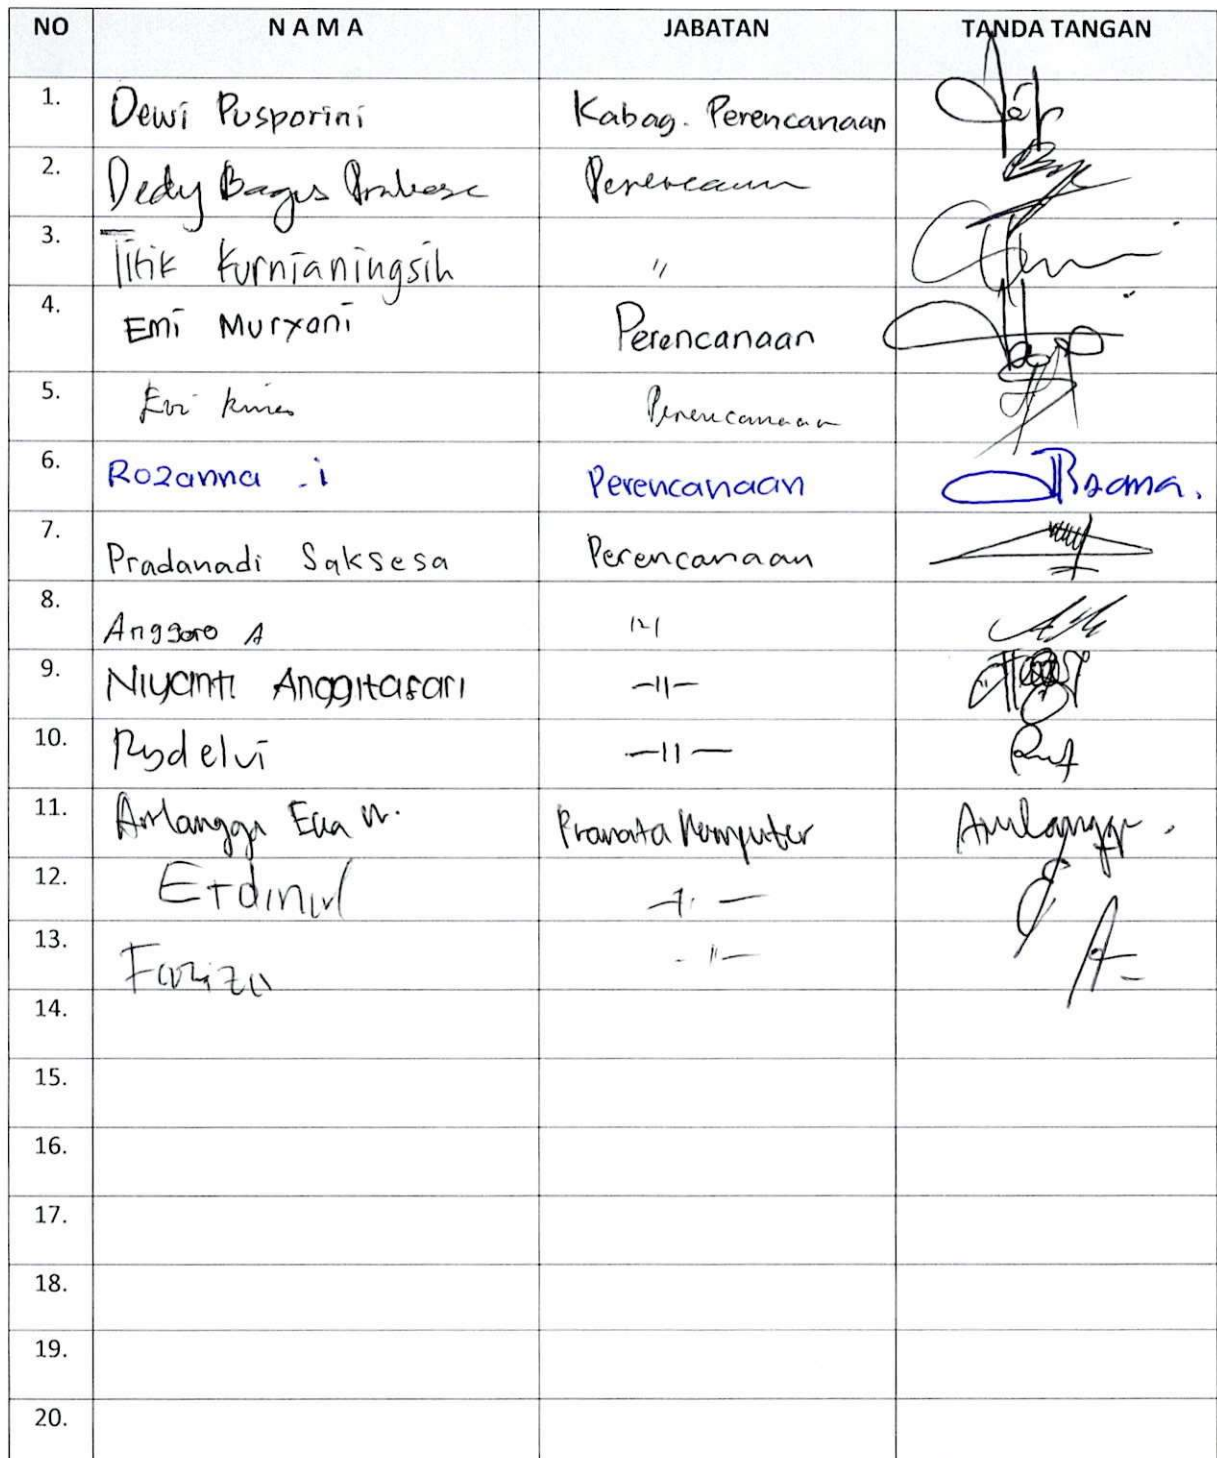 NO NAMA JABATAN TANDA TANGAN
1. Dewi Pusporini Kabag. Perencanaan
2. Dedy Bagus
3. Titik Kurnianingsih "
4. Emi Muryani Perencanaan
5. Evi Perencanaan
6. Rozanna .i Perencanaan
7. Pradanadi Saksesa Perencanaan
8. Anggoro A
9. Niyanti Anggitasari -11-
10. -11-
11. Airlangga Eka W. Pranata Komputer Airlangga
12.
13. Fariza - 11 -
14.
15.
16.
17.
18.
19.
20.